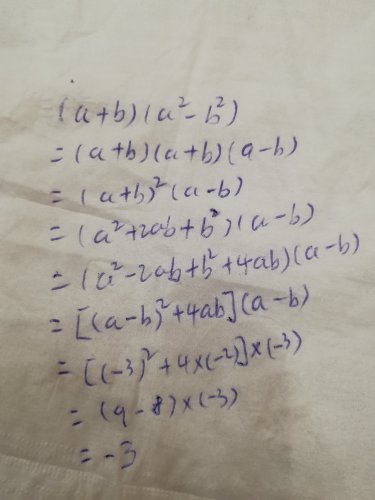 (a+b)(a²-b²)
=(a+b)(a+b)(a-b)
=(a+b)²(a-b)
=(a²+2ab+b²)(a-b)
=(a²-2ab+b²+4ab)(a-b)
=[(a-b)²+4ab](a-b)
=[(-3)²+4×(-2)]×(-3)
=(9-8)×(-3)
=-3